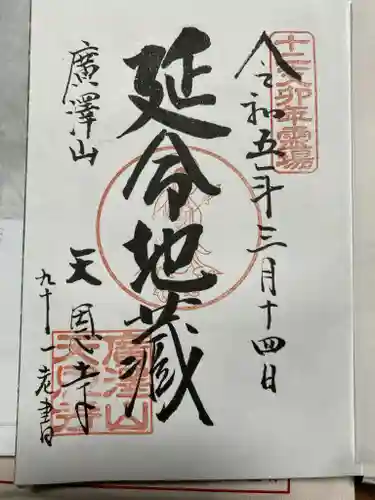 十二支卯年靈場
令和五年三月十四日
延命地蔵
廣澤山
天恩寺
九十一老書
廣澤山
天恩寺